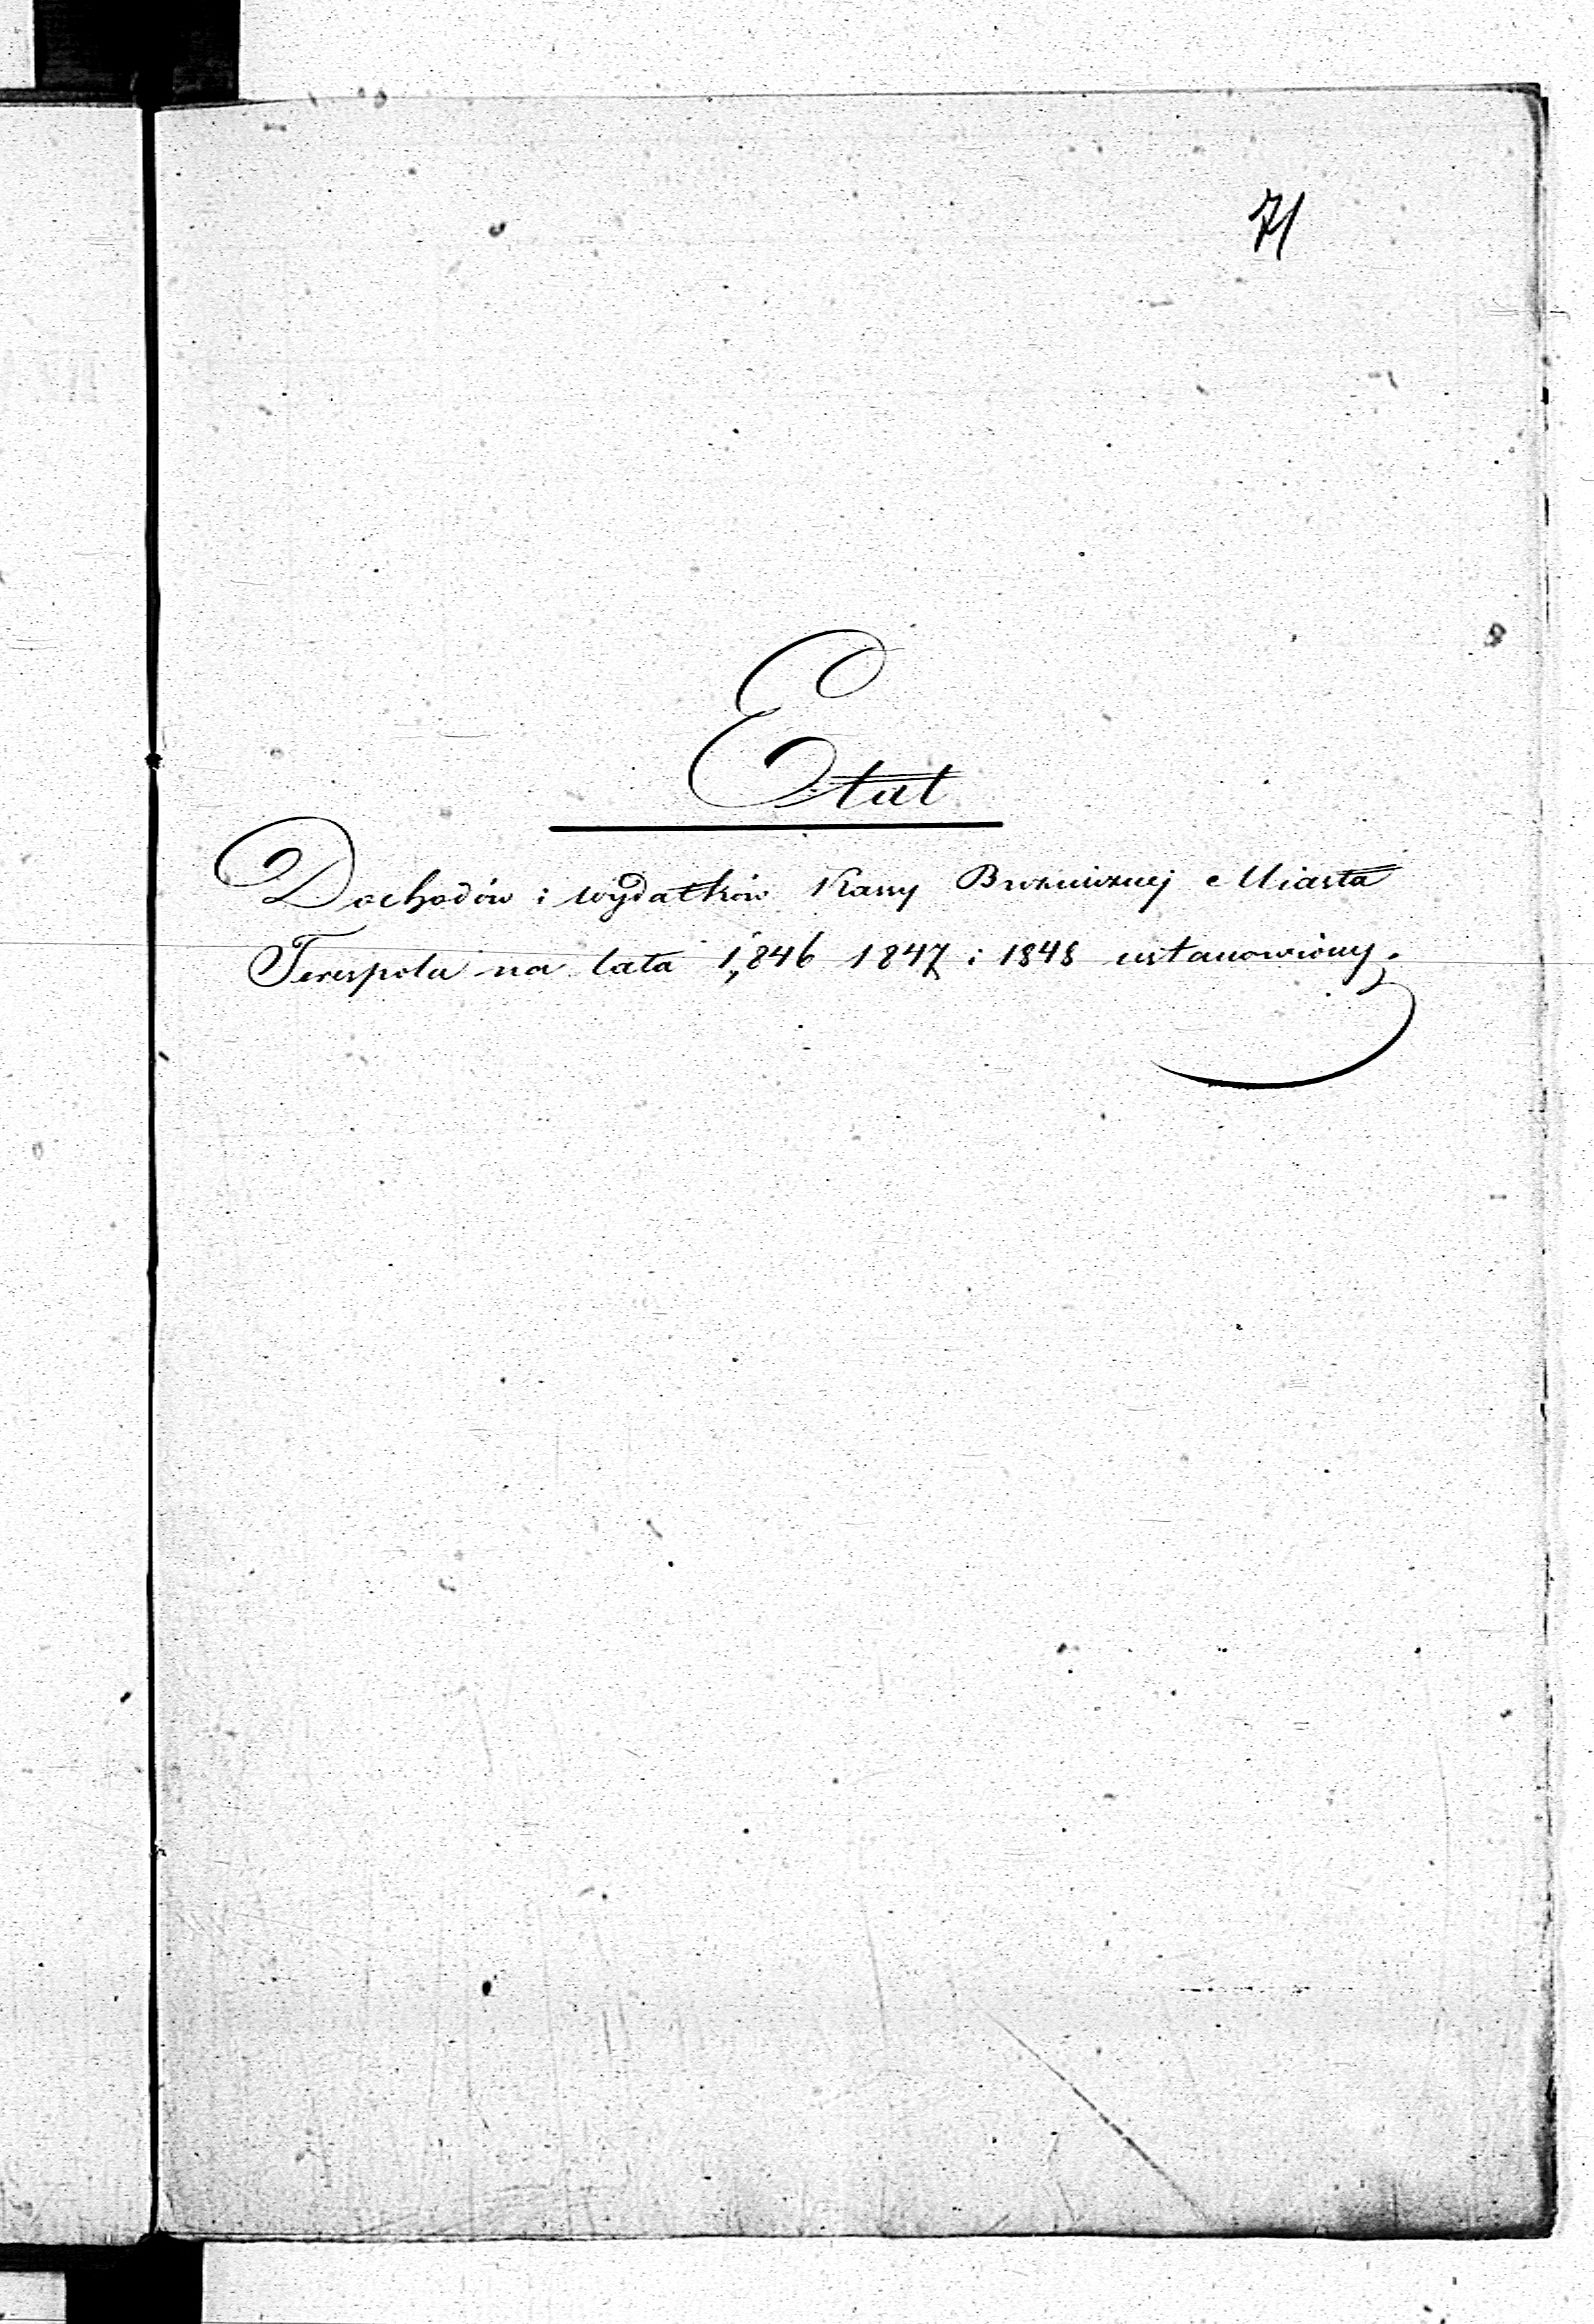 71
Etat
Dochodów i wydatków Kassy Boznicznej Miasta
Terespola na lata 1846 1847 i 1848 ustanowiony.